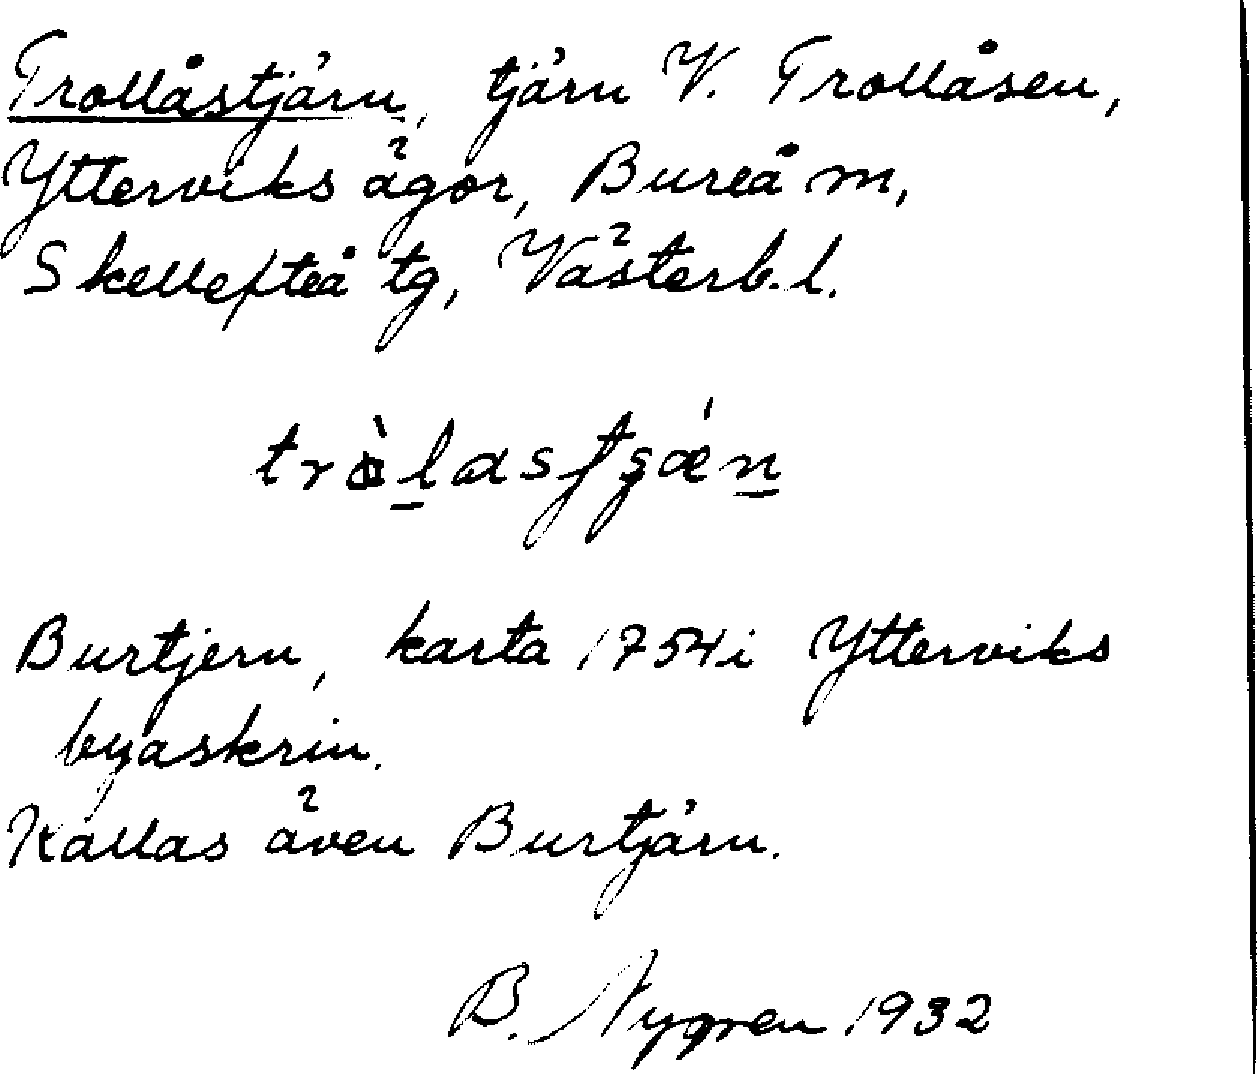 Trollåstjärn, tjärn V. Trollåsen,
Ytterviks ägor, Bureå m,
Skellefteå tg, Västerb. l.
Burtjern, karta 1754 i Ytterviks
byaskrin.
Kallas även Burtjärn.
B. Nygren 1932